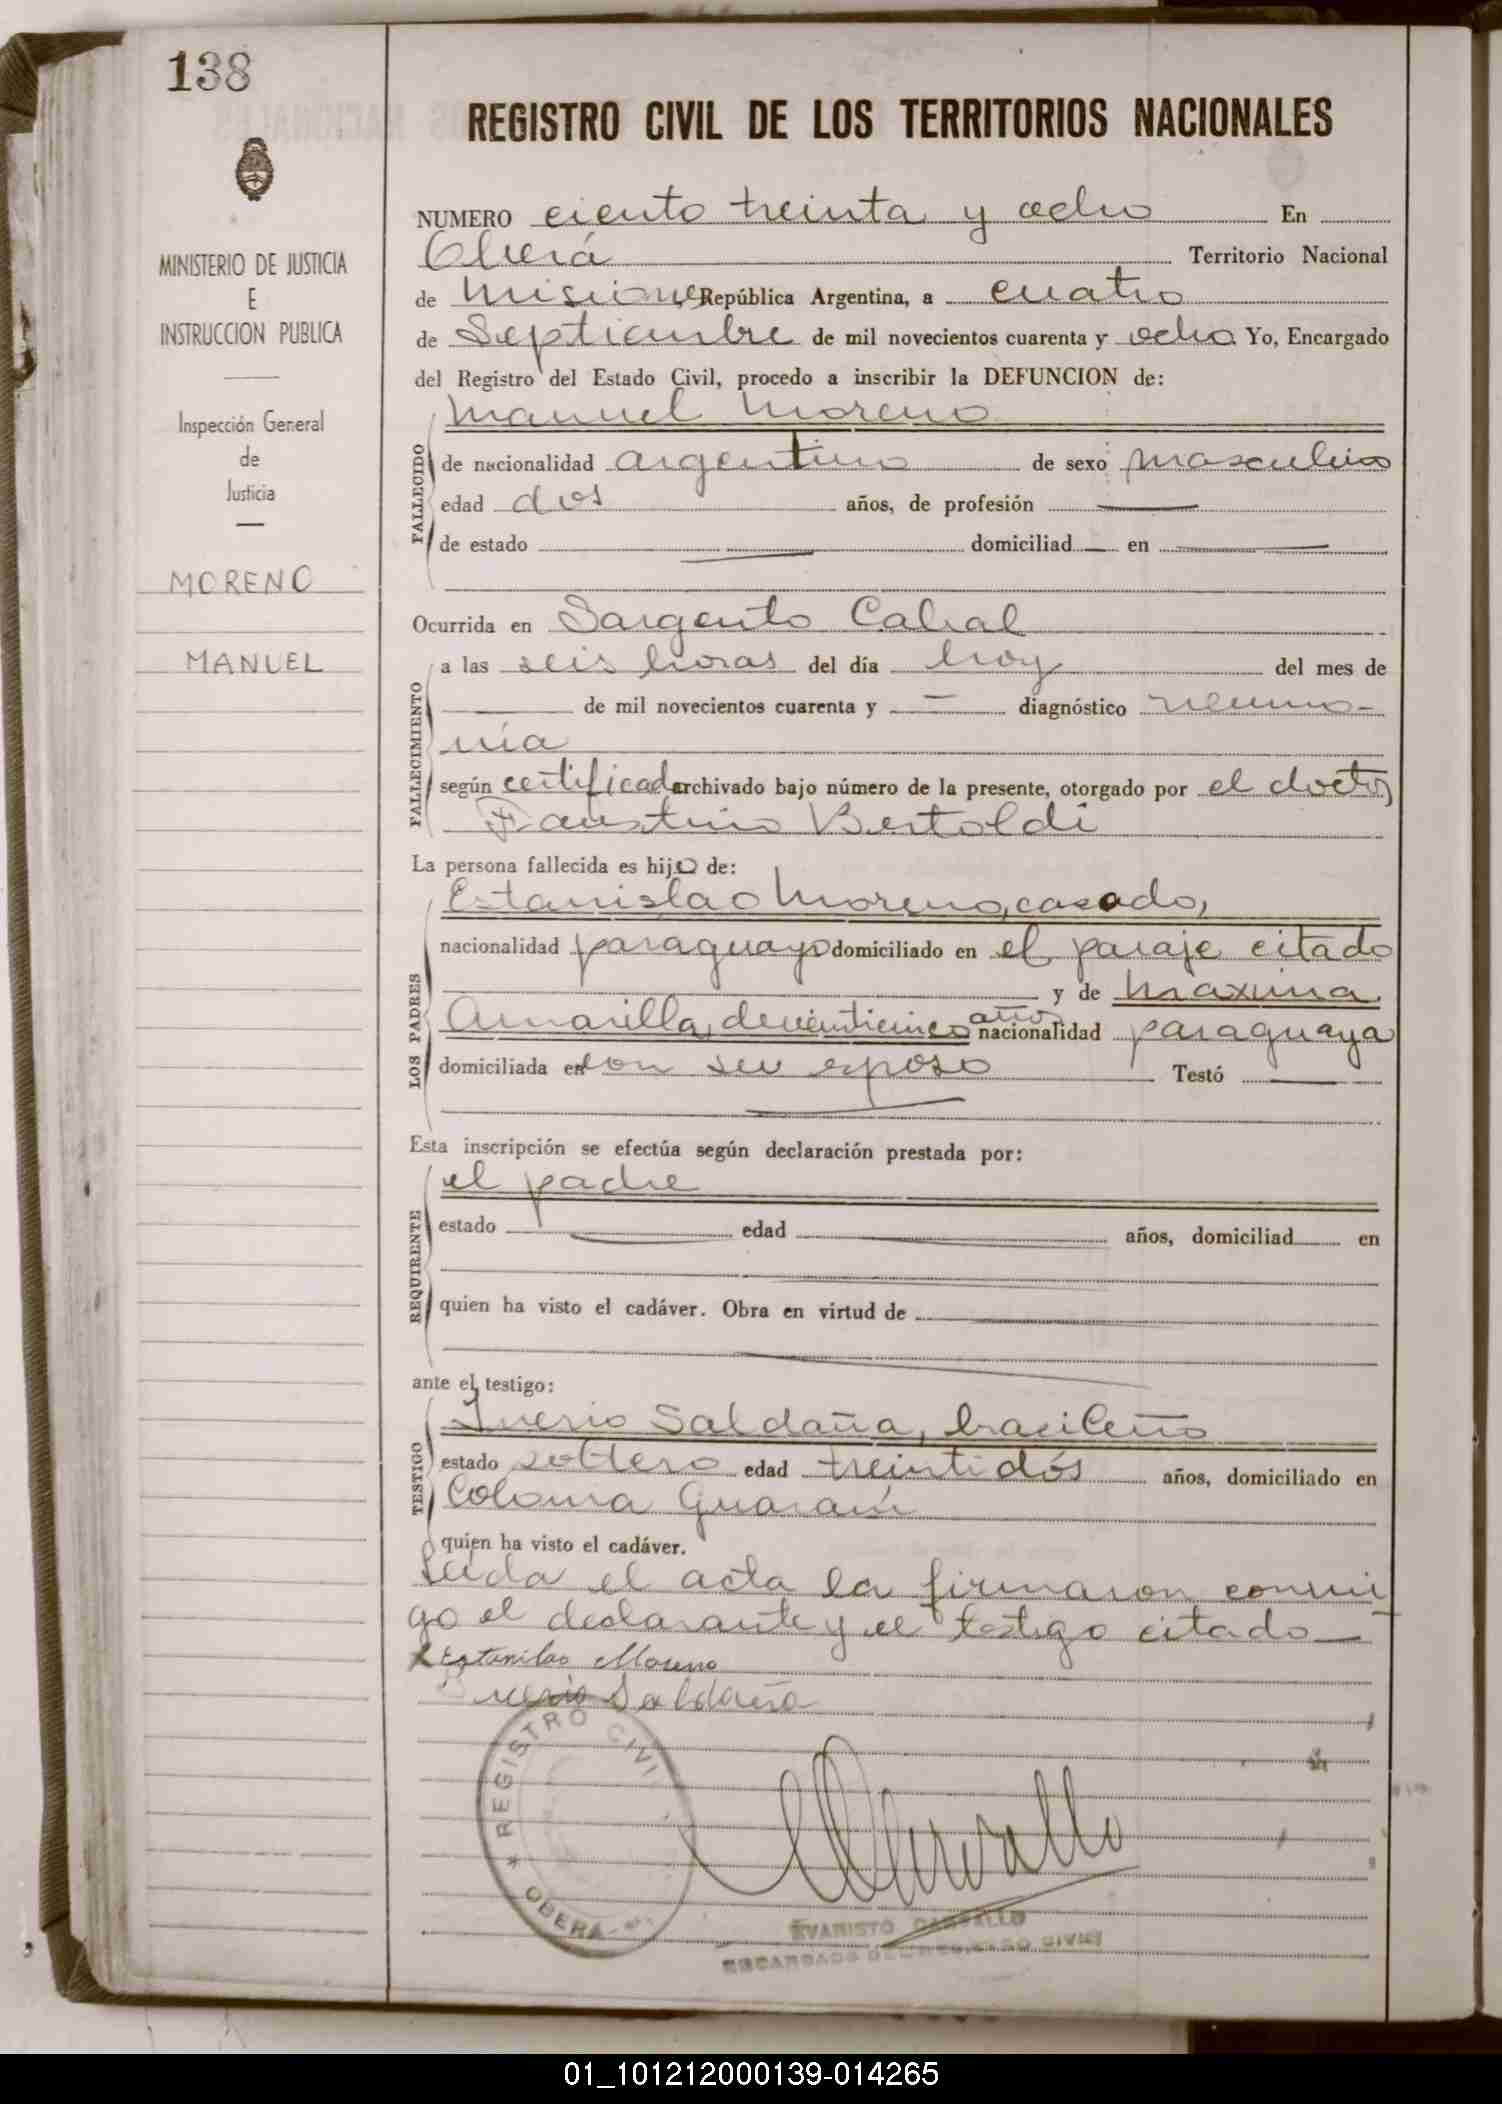 138
REGISTRO CIVIL DE LOS TERRITORIOS NACIONALES
MINISTERIO DE JUSTICIA
E
INSTRUCCION PUBLICA
Inspección General
de
Justicia
MORENO
MANUEL
NUMERO ciento treinta y ocho En
Oberá Territorio Nacional
de Misiones República Argentina, a cuatro
de Septiembre de mil novecientos cuarenta y ocho Yo, Encargado
del Registro del Estado Civil, procedo a inscribir la DEFUNCION de:
Manuel Moreno
FALLECIDO
de nacionalidad argentino de sexo masculino
edad dos años, de profesión
de estado domiciliad en
Ocurrida en Sargento Cabral
FALLECIMIENTO
a las seis horas del día hoy del mes de
de mil novecientos cuarenta y diagnóstico neumo-
nía
según certificado archivado bajo número de la presente, otorgado por el doctor
Faustino Bertoldi
La persona fallecida es hijo de:
LOS PADRES
Estanislao Moreno, casado,
nacionalidad paraguayo domiciliado en el paraje citado
y de Maxima
Amarilla, de veinticinco años nacionalidad paraguaya
domiciliada en con su esposo Testó
Esta inscripción se efectúa según declaración prestada por:
REQUIRENTE
el padre
estado edad años, domiciliad en
quien ha visto el cadáver. Obra en virtud de
ante el testigo:
TESTIGO
Saldaña, brasileño
estado soltero edad treintidós años, domiciliado en
Colonia Guaraní
quien ha visto el cadáver.
Leida el acta la firmaron conmi
go el declarante y el testigo citado
Estanilao Moreno
Saldaña
REGISTRO CIVIL
* OBERÁ
EVARISTO CARVALLO
ENCARGADO DEL REGISTRO CIVIL
01_101212000139-014265